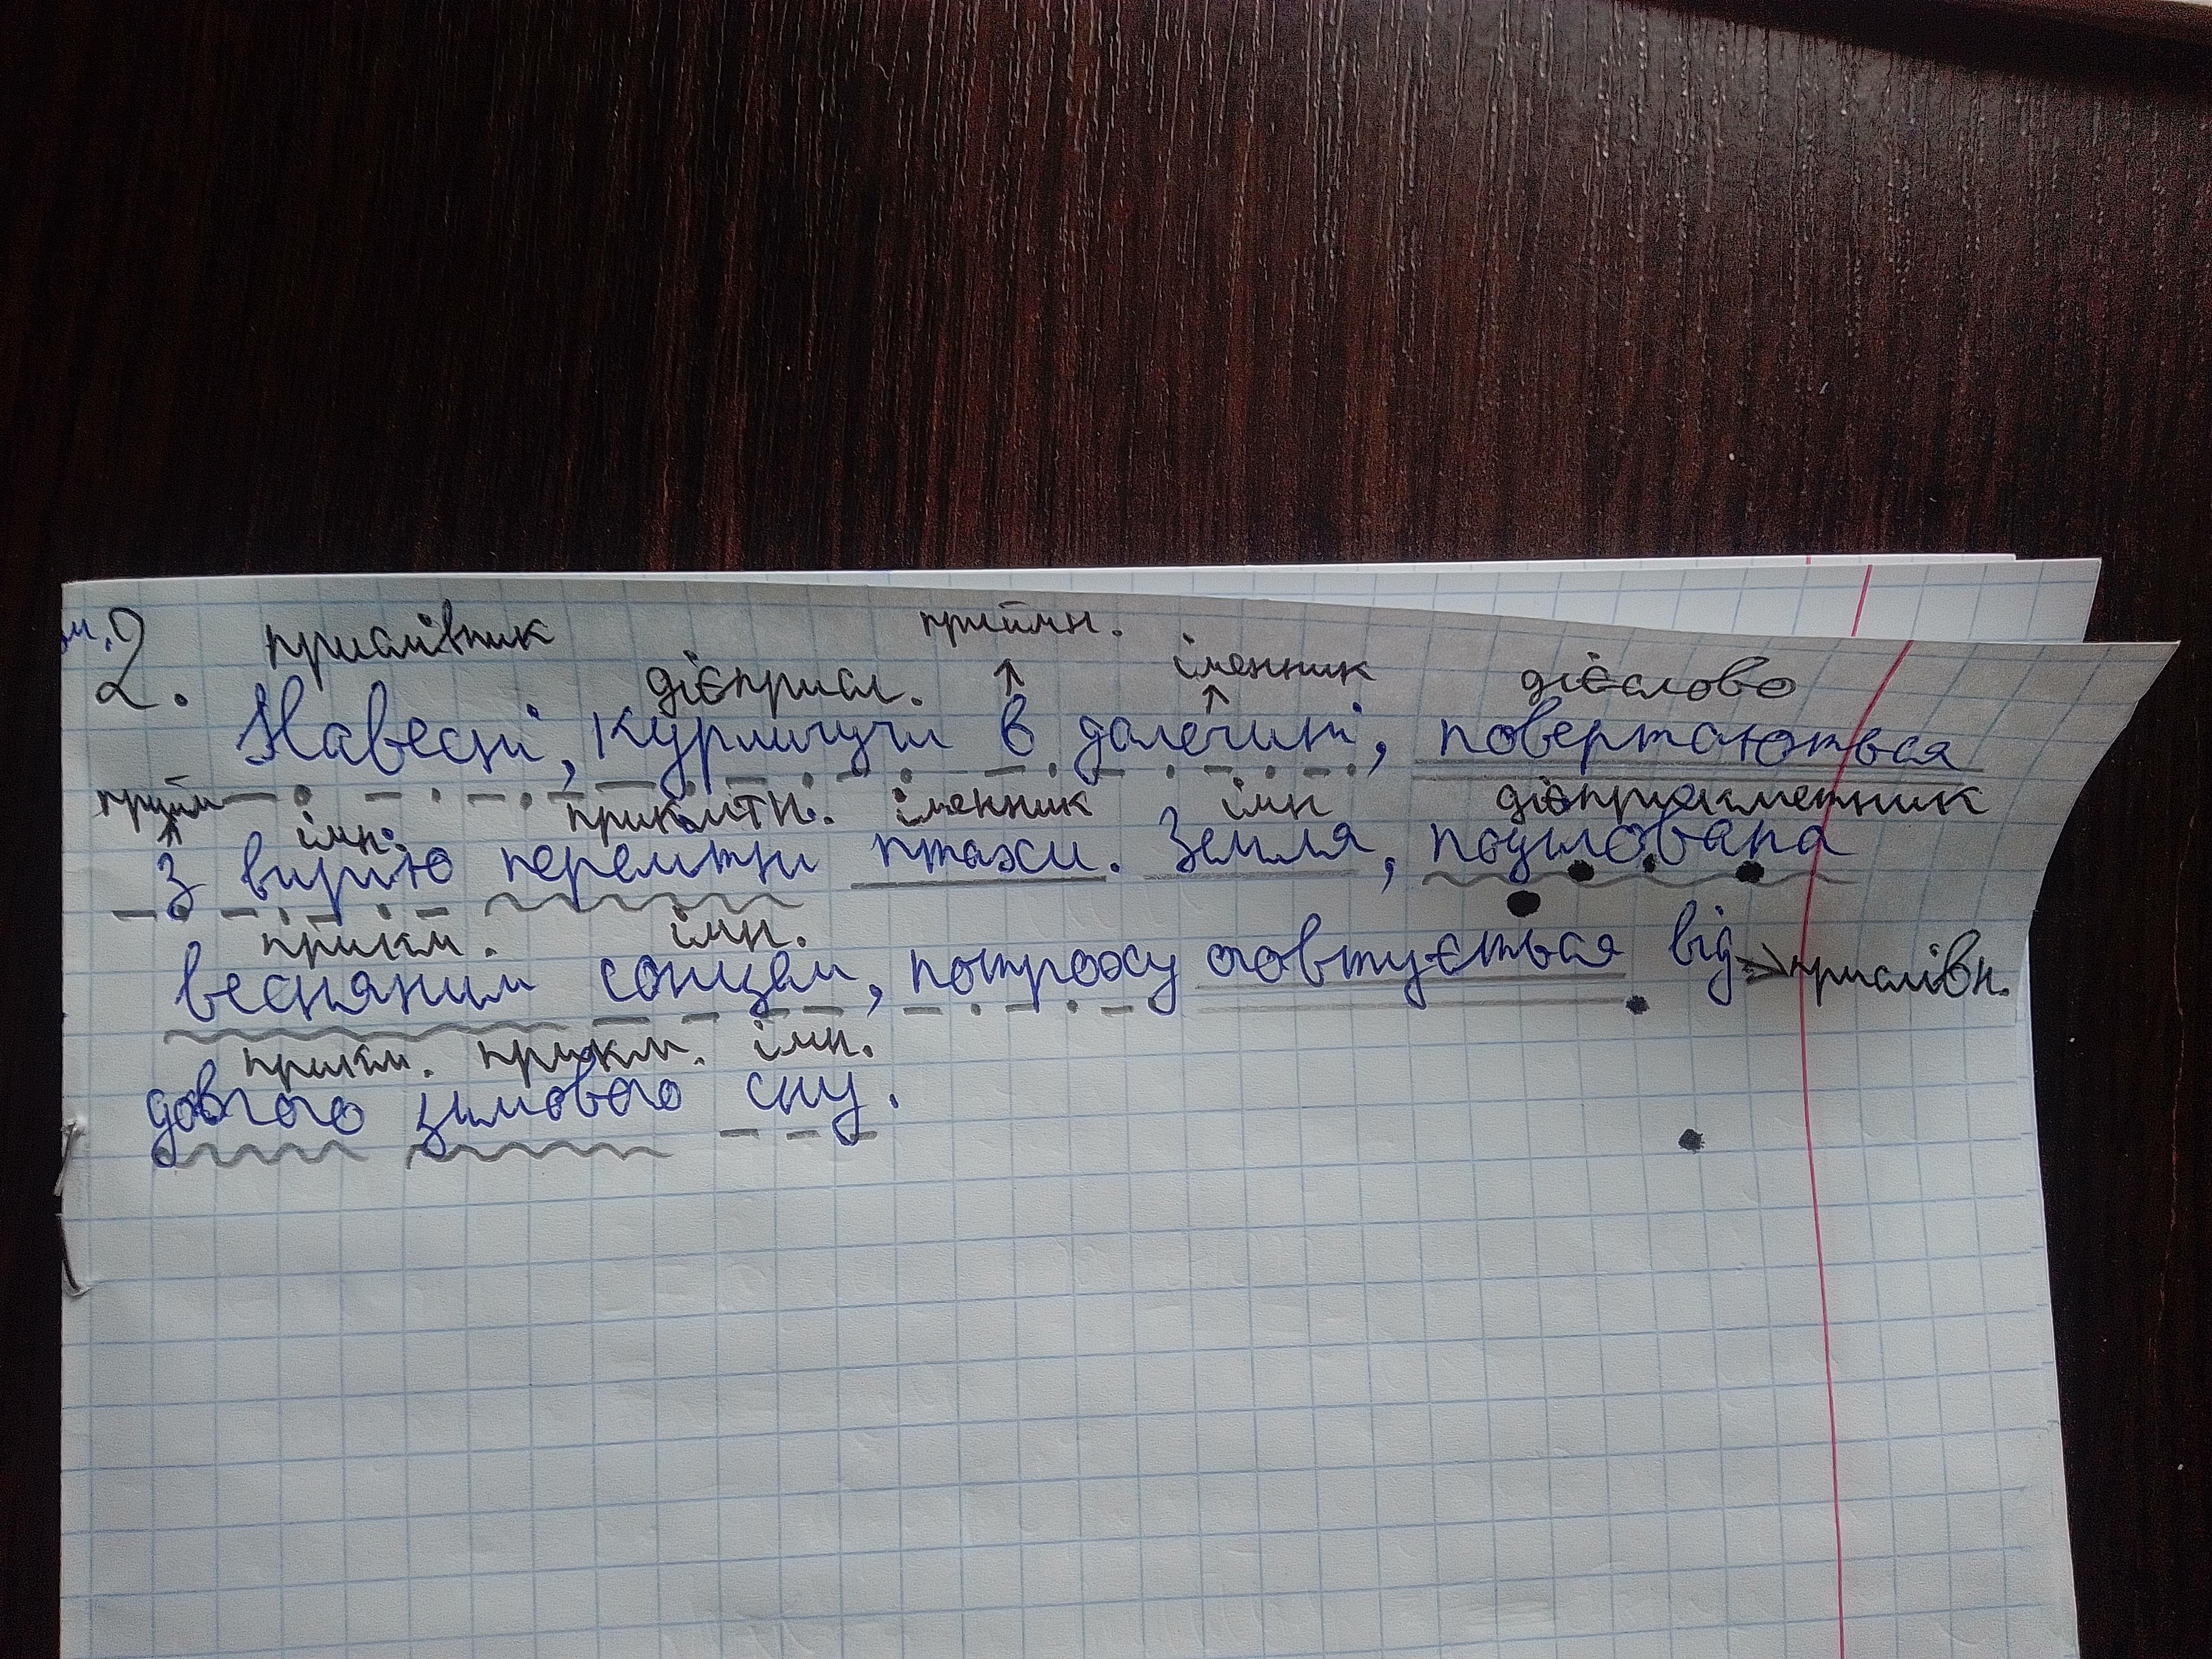 2. прислівник прийм.
дієприсл. іменник дієслово
Навесні, курличучи в далечині, повертаються
прийм імн. прикмтн. іменник імн дієприкметник
З вирію перелітні птахи. Земля, поцілована
прикм. імн.
весняним сонцем, потроху оговтується від прислівн.
прикм. прикм. імн.
довгого зимового сну.